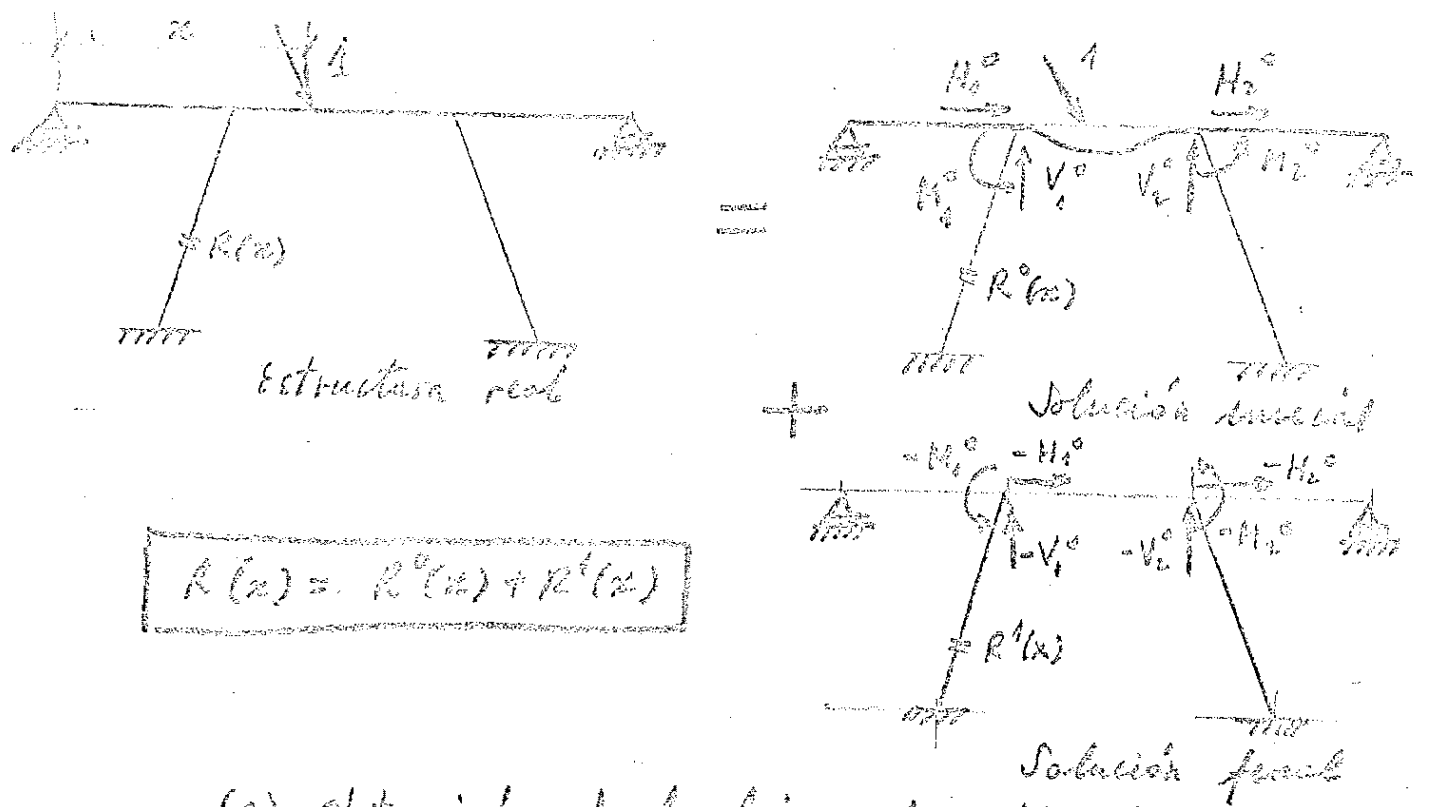 x
1
R(x)
Estructura real
=
H₁⁰ 1 H₂⁰
M₁⁰ V₁⁰ V₂⁰ M₂⁰
R⁰(x)
Solución inicial
+
-M₁⁰ -H₁⁰ -H₂⁰
-V₁⁰ -V₂⁰ -M₂⁰
R¹(x)
Solución final
R(x) = R⁰(x) + R¹(x)